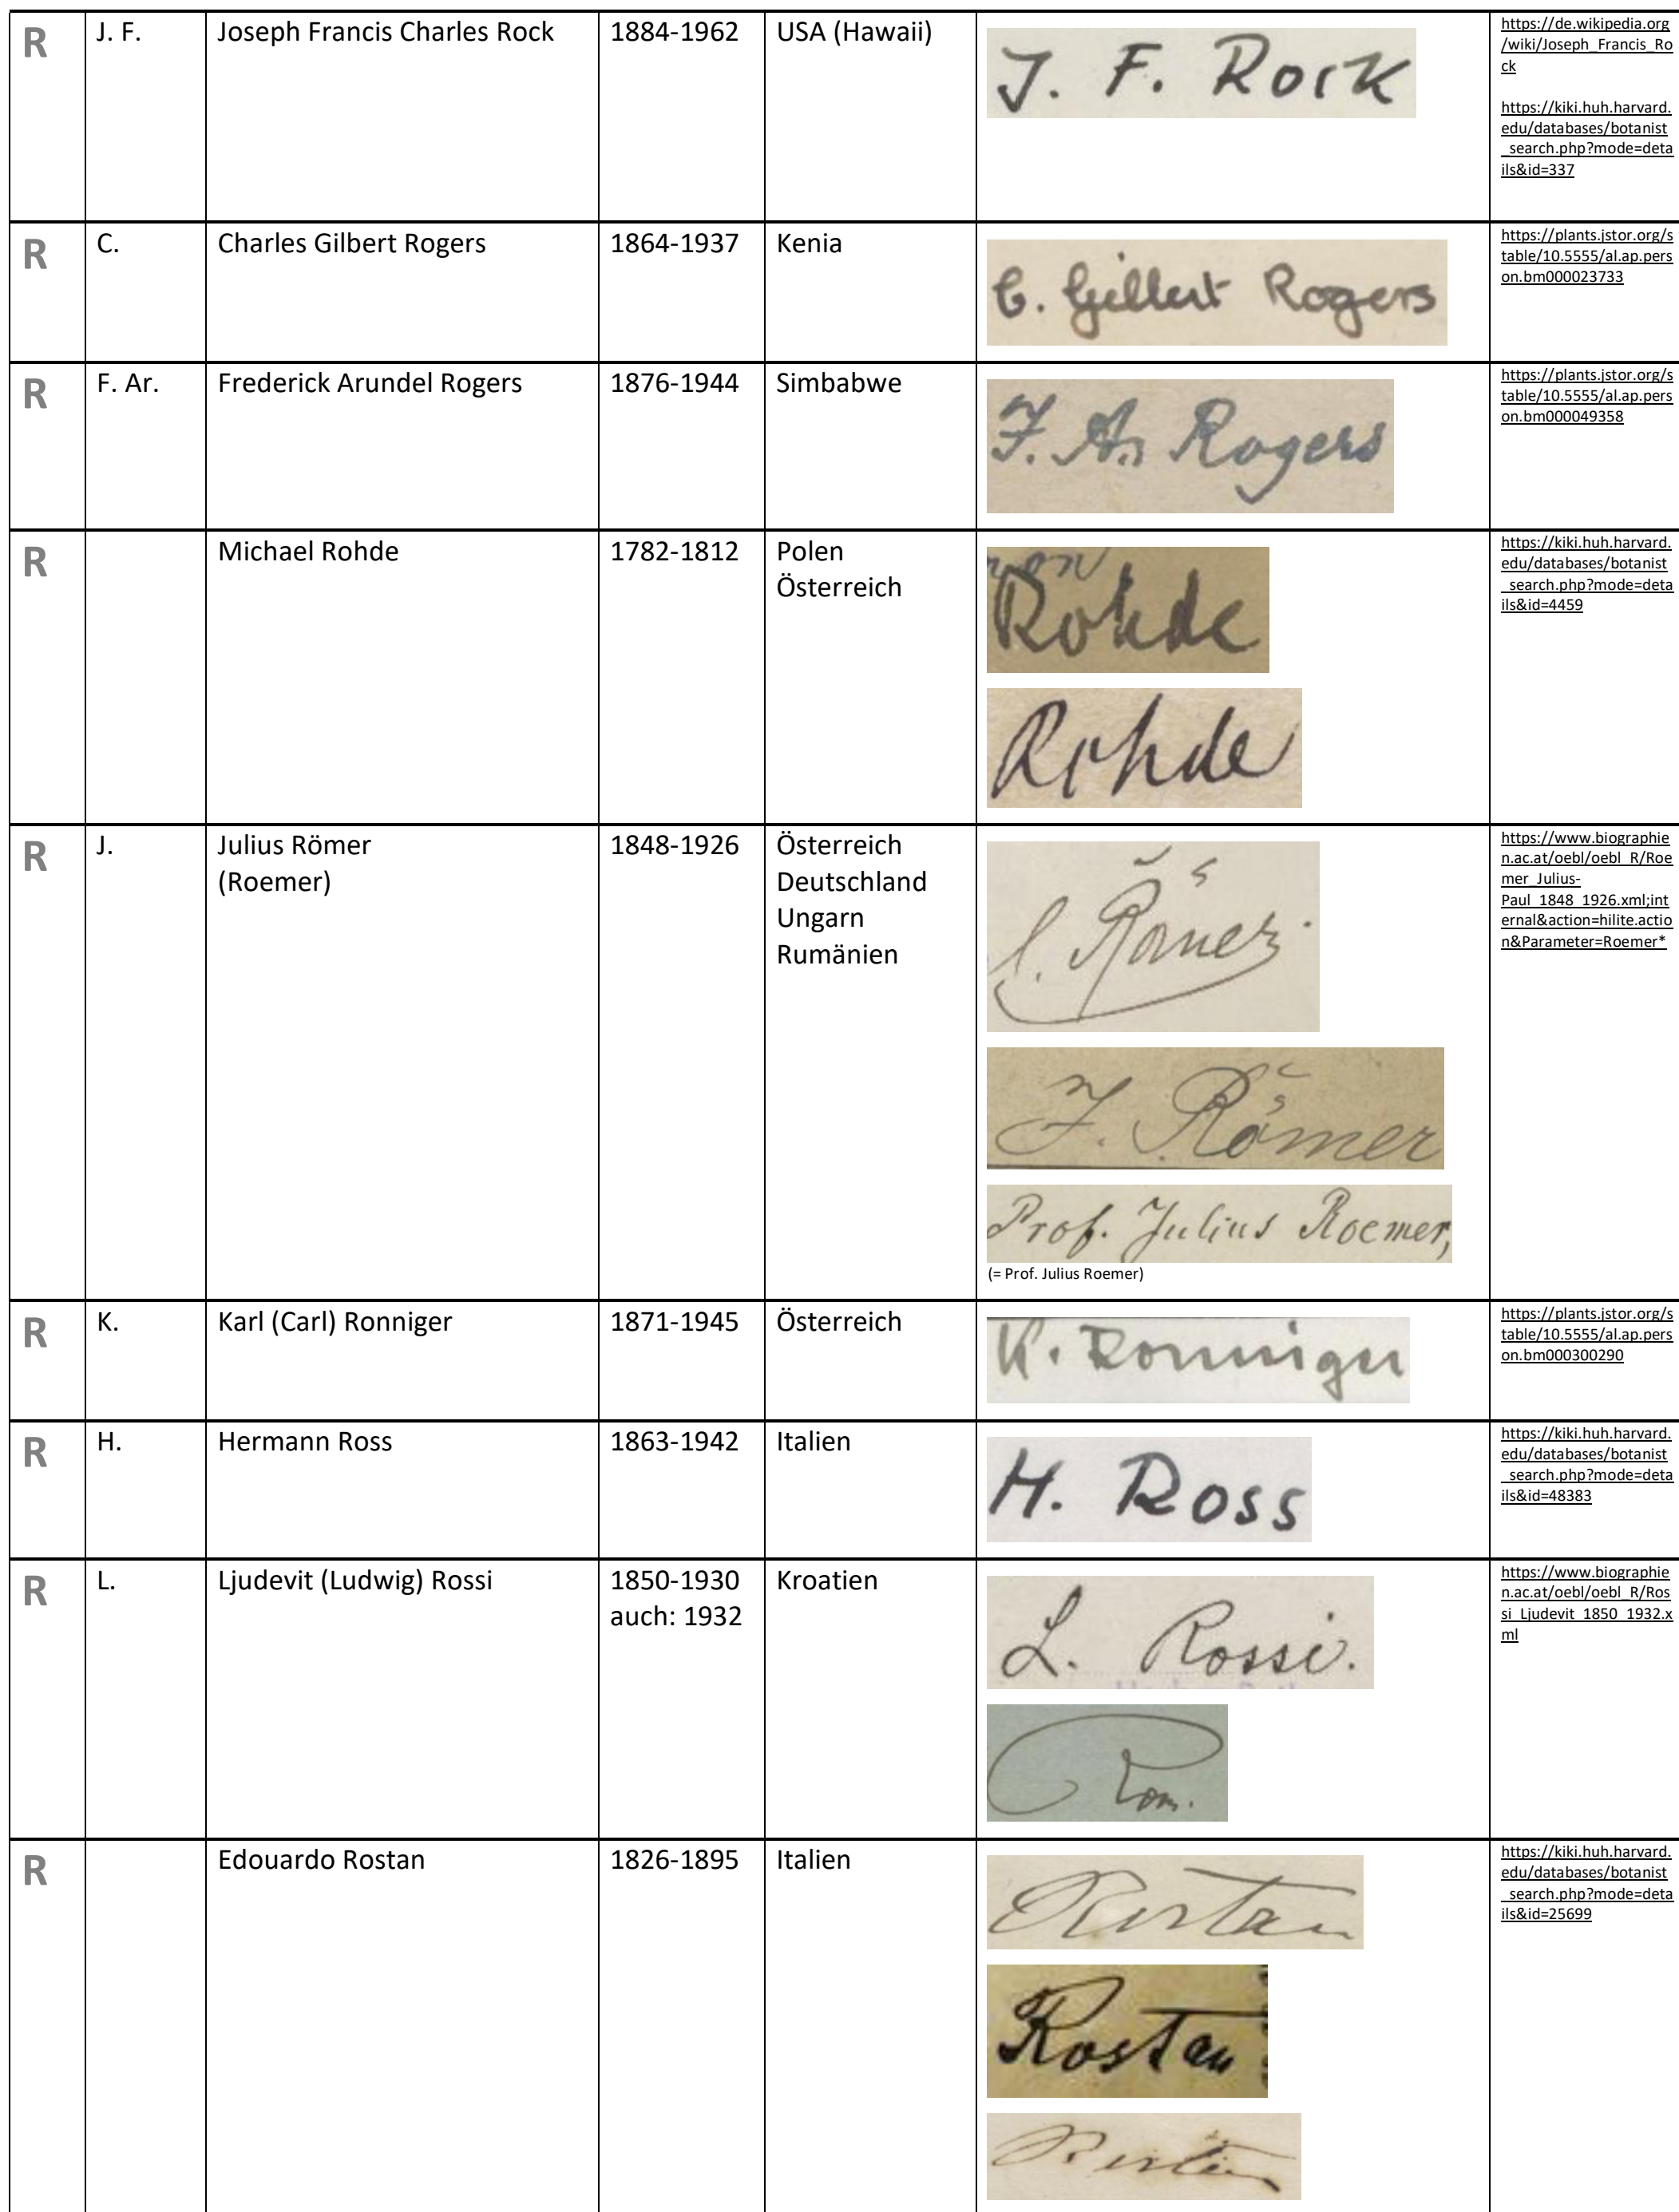 R J. F. Joseph Francis Charles Rock 1884-1962 USA (Hawaii)
J. F. Rock
https://de.wikipedia.org
/wiki/Joseph_Francis_Ro
ck
https://kiki.huh.harvard.
edu/databases/botanist
_search.php?mode=deta
ils&id=337
R C. Charles Gilbert Rogers 1864-1937 Kenia
C. Gilbert Rogers
https://plants.jstor.org/s
table/10.5555/al.ap.pers
on.bm000023733
R F. Ar. Frederick Arundel Rogers 1876-1944 Simbabwe
F. Ar. Rogers
https://plants.jstor.org/s
table/10.5555/al.ap.pers
on.bm000049358
R Michael Rohde 1782-1812 Polen
Österreich
Rohde
Rohde
https://kiki.huh.harvard.
edu/databases/botanist
_search.php?mode=deta
ils&id=4459
R J. Julius Römer 1848-1926 Österreich
(Roemer) Deutschland
Ungarn
Rumänien
J. Römer
J. Römer
Prof. Julius Roemer,
(= Prof. Julius Roemer)
https://www.biographie
n.ac.at/oebl/oebl_R/Roe
mer_Julius-
Paul_1848_1926.xml;int
ernal&action=hilite.actio
n&Parameter=Roemer*
R K. Karl (Carl) Ronniger 1871-1945 Österreich
K. Ronniger
https://plants.jstor.org/s
table/10.5555/al.ap.pers
on.bm000300290
R H. Hermann Ross 1863-1942 Italien
H. Ross
https://kiki.huh.harvard.
edu/databases/botanist
_search.php?mode=deta
ils&id=48383
R L. Ljudevit (Ludwig) Rossi 1850-1930 Kroatien
auch: 1932
L. Rossi.
https://www.biographie
n.ac.at/oebl/oebl_R/Ros
si_Ljudevit_1850_1932.x
ml
R Edouardo Rostan 1826-1895 Italien
Rostan
Rostan
Rostan
https://kiki.huh.harvard.
edu/databases/botanist
_search.php?mode=deta
ils&id=25699